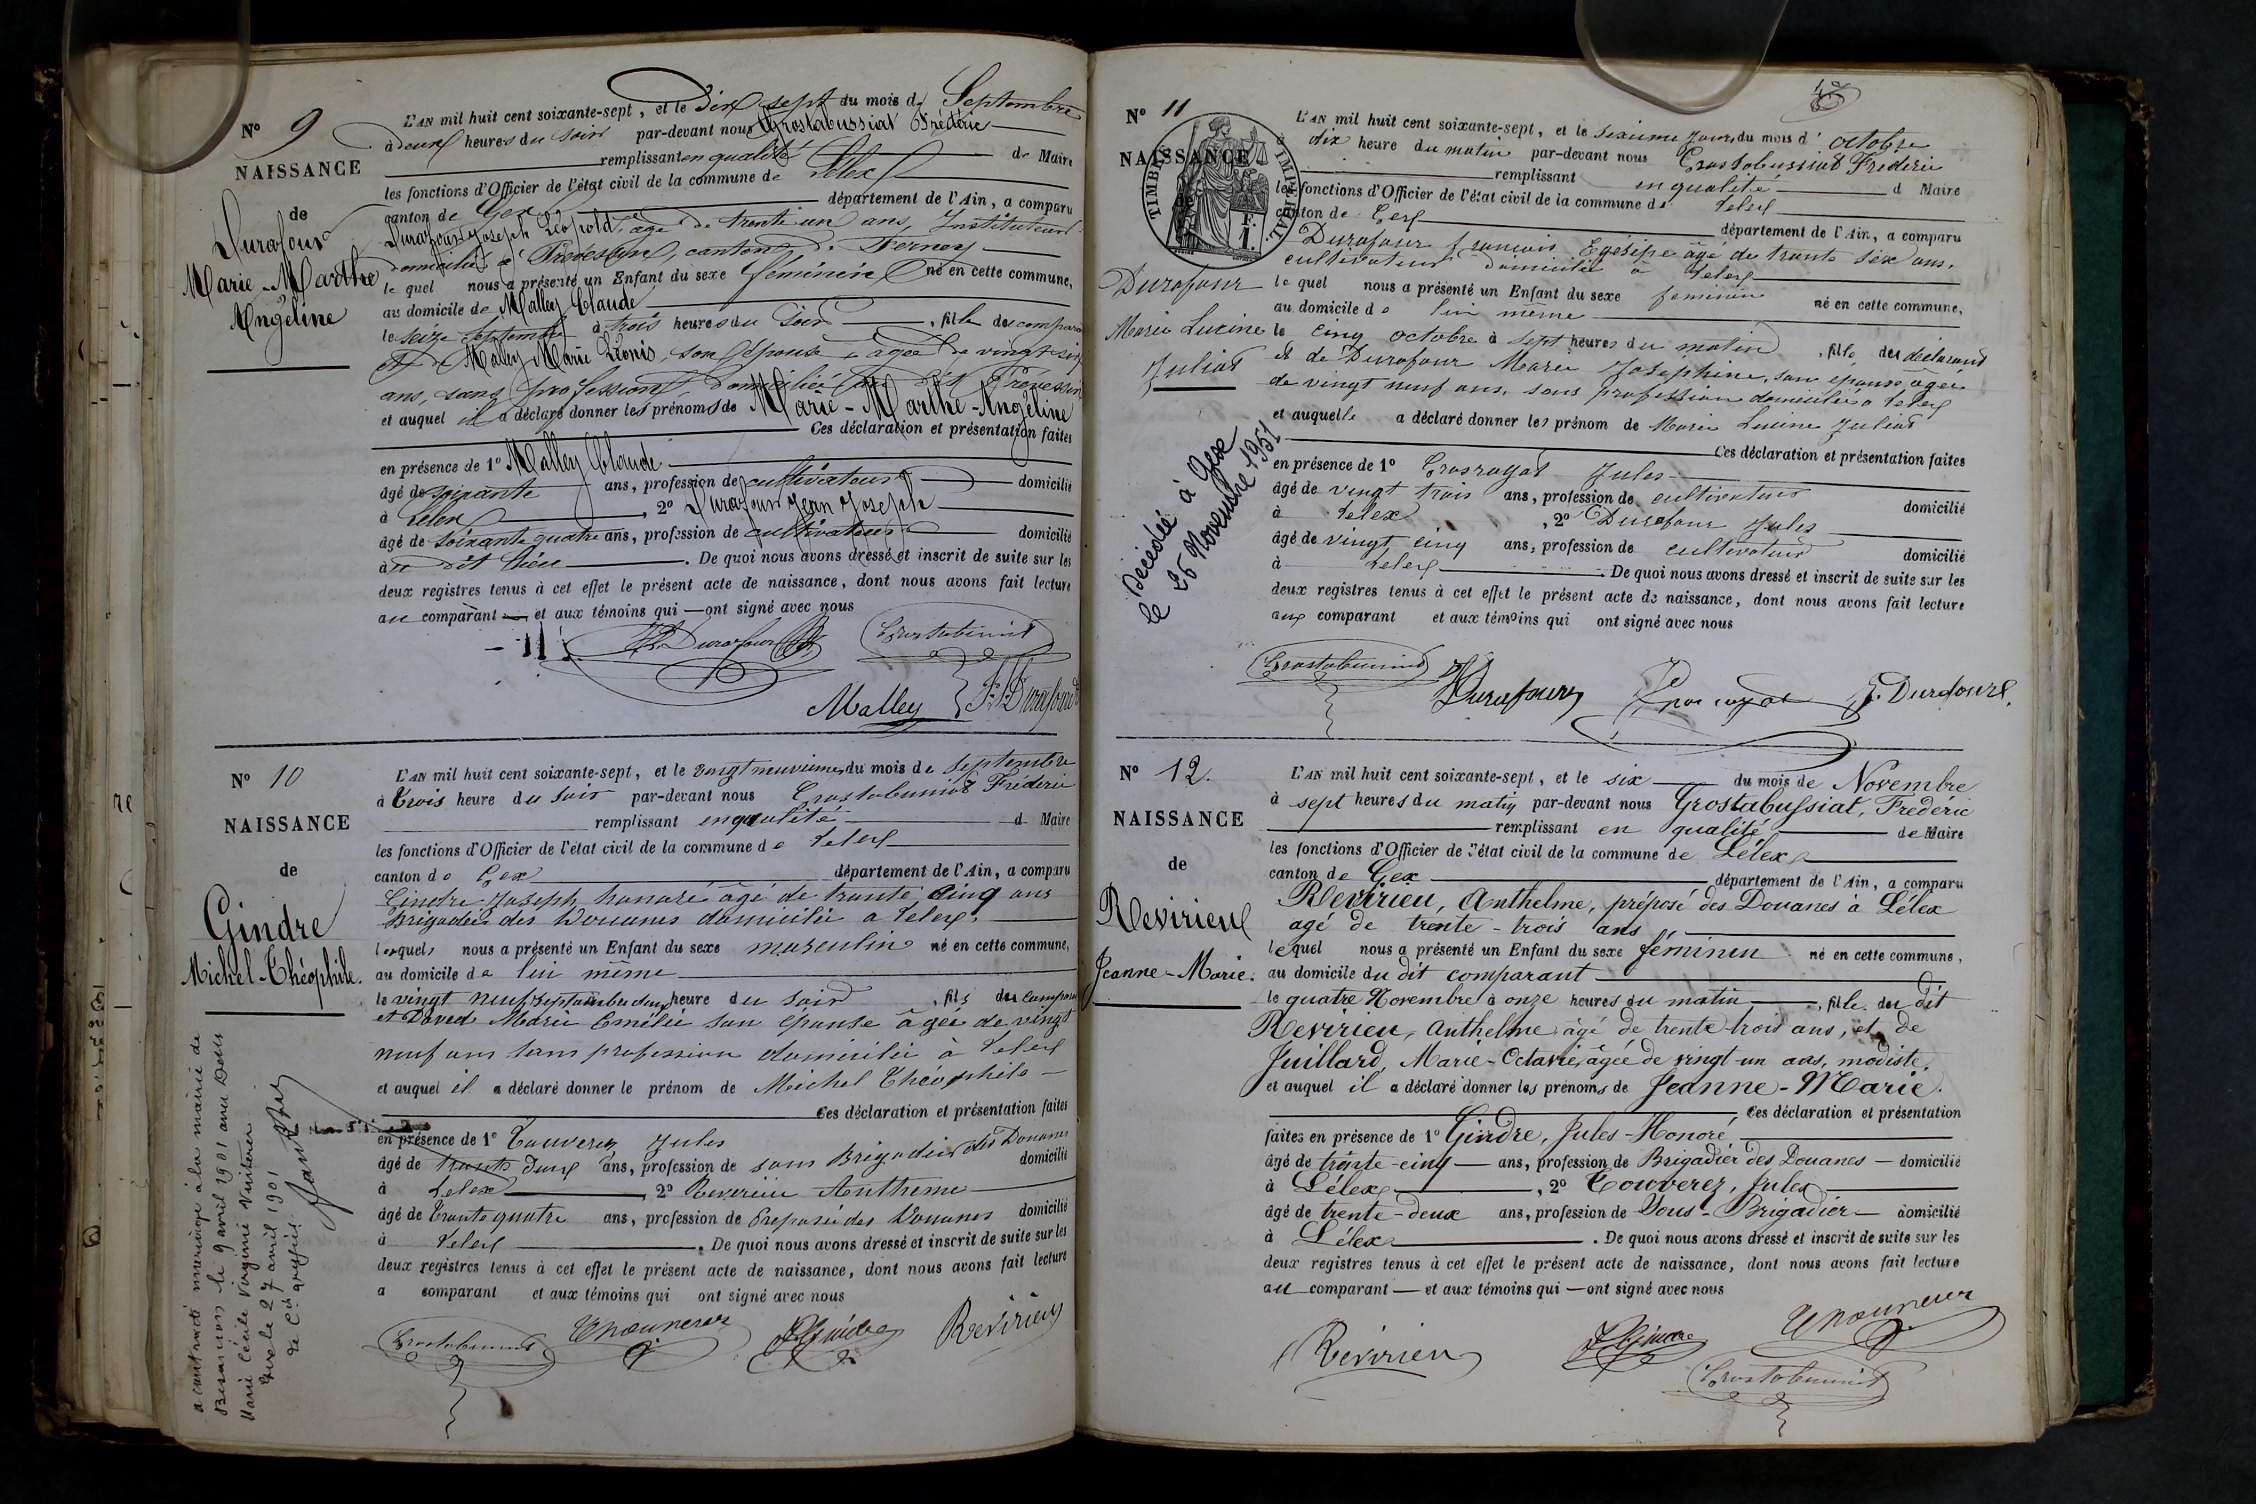 N° 9
NAISSANCE
de
Durafour
Marie-Marthe
Angéline
L'AN mil huit cent soixante-sept, et le Dix sept du mois de Septembre
à deux heures du soir par-devant nous Grostabussiat Frédéric
remplissant en qualité de Maire
les fonctions d'Officier de l'état civil de la commune de Lélex
canton de Gex département de l'Ain, a comparu
Durafour Joseph Léopold, âgé de trente un ans, Instituteur
domicilié à Prévessin, canton de Ferney
le quel nous a présenté un Enfant du sexe féminin né en cette commune,
au domicile de Malley Claude
le seize septembre à trois heures du soir, fille des compara
et de Malley Marie Léonis, son épouse, âgée de vingt six
ans, sans profession, domiciliée au dit Prévessin
et auquel il a déclaré donner les prénoms de Marie-Marthe-Angéline
Ces déclaration et présentation faites
en présence de 1° Malley Claude
âgé de soixante ans, profession de cultivateur domicilié
à Lelex, 2° Durafour Jean Joseph
âgé de soixante quatre ans, profession de cultivateur domicilié
au dit lieu. De quoi nous avons dressé et inscrit de suite sur les
deux registres tenus à cet effet le présent acte de naissance, dont nous avons fait lecture
au comparant et aux témoins qui ont signé avec nous
Durafour Grostabussiat
Malley Durafour
N° 10
NAISSANCE
de
Gindre
Michel-Théophile.
a contracté mariage à la mairie de
le 9 avril 1901 avec
Marie Cécile Virginie
Gex le 27 avril 1901
L'AN mil huit cent soixante-sept, et le vingt neuvième du mois de septembre
à trois heure du soir par-devant nous Grostabussiat Fréderic
remplissant en qualité d Maire
les fonctions d'Officier de l'état civil de la commune de Lelex
canton de Gex département de l'Ain, a comparu
Gindre Joseph honoré âgé de trante cinq ans
Brigadier des Douanes domicilié a Lelex.
lesquels nous a présenté un Enfant du sexe masculin né en cette commune,
au domicile de lui même
le vingt neuf septembre deux heure du soir, fils des compara
et David Marie Emélie son épouse âgée de vingt
neuf ans sans profession domicilié à Lelex
et auquel il a déclaré donner le prénom de Michel Théophile
Ces déclaration et présentation faites
en présence de 1° Touverez Jules
âgé de trante deux ans, profession de sous Brigadier des Douanes domicilié
à Lelex, 2° Reverieu Antheme
âgé de trante quatre ans, profession de Préposé des Douanes domicilié
à Lelex. De quoi nous avons dressé et inscrit de suite sur les
deux registres tenus à cet effet le présent acte de naissance, dont nous avons fait lecture
a comparant et aux témoins qui ont signé avec nous
Grostabussiat Gindre Revirieu
N° 11
NAISSANCE
de
TIMBRE IMPERIAL
1 F.
Durafour
Marie Lucine
Juliat
Décédée à Gex
le 26 Novembre 1951
L'AN mil huit cent soixante-sept, et le sixieme jour du mois d' octobre
dix heure du matin par-devant nous Grostabussiat Fréderic
remplissant en qualité d Maire
les fonctions d'Officier de l'état civil de la commune de Lelex
canton de Gex département de l'Ain, a comparu
Durafour francois Egésipe âgé de trante six ans,
cultivateur domicilié à Lelex
le quel nous a présenté un Enfant du sexe feminin né en cette commune,
au domicile de lui même
le cinq octobre à sept heures du matin, fille des déclarant
et de Durafour Marie Josephine, son épouse âgée
de vingt neuf ans, sans profession domiciliée à Lelex
et auquelle a déclaré donner les prénom de Marie Lucine Juliat
Ces déclaration et présentation faites
en présence de 1° Grosroyat Jules
âgé de vingt trois ans, profession de cultivateur domicilié
à Lelex, 2° Durafour Jules
âgé de vingt cinq ans, profession de cultivateur domicilié
à Lelex. De quoi nous avons dressé et inscrit de suite sur les
deux registres tenus à cet effet le présent acte de naissance, dont nous avons fait lecture
aux comparant et aux témoins qui ont signé avec nous
Grostabussiat Durafour Grosroyat J. Durafour
N° 12.
NAISSANCE
de
Revirieu
Jeanne-Marie.
L'AN mil huit cent soixante-sept, et le six du mois de Novembre
à sept heures du matin par-devant nous Grostabussiat, Frédéric
remplissant en qualité de Maire
les fonctions d'Officier de l'état civil de la commune de Lélex
canton de Gex département de l'Ain, a comparu
Revirieu, Anthelme, préposé des Douanes à Lélex
agé de trente-trois ans
lequel nous a présenté un Enfant du sexe féminin né en cette commune,
au domicile du dit comparant
le quatre Novembre à onze heures du matin, fille du dit
Revirieu, Anthelme âgé de trente trois ans, et de
Juillard, Marie-Octavie, âgée de vingt-un ans, modiste.
et auquel il a déclaré donner les prénoms de Jeanne-Marie.
Ces déclaration et présentation
faites en présence de 1° Gindre, Jules-Honoré
âgé de trente-cinq ans, profession de Brigadier des Douanes domicilié
à Lélex, 2° Touverez, Jules
âgé de trente-deux ans, profession de Sous-Brigadier domicilié
à Lélex. De quoi nous avons dressé et inscrit de suite sur les
deux registres tenus à cet effet le présent acte de naissance, dont nous avons fait lecture
au comparant et aux témoins qui ont signé avec nous
Revirieu Gindre
Grostabussiat